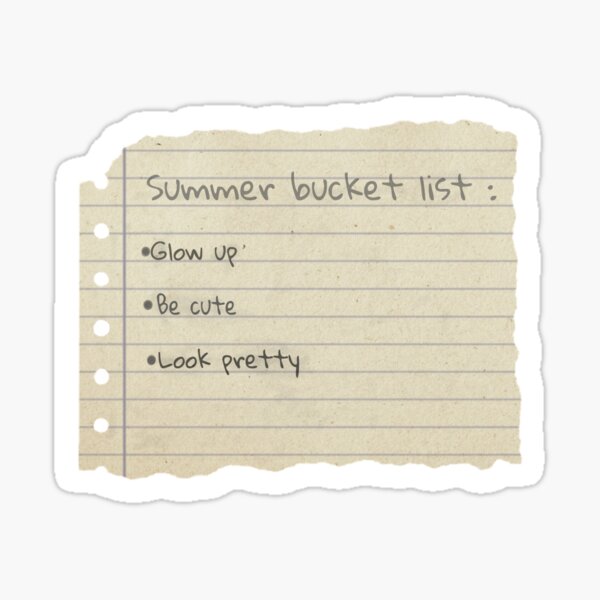 Summer bucket list :
•Glow up'
•Be cute
•Look pretty